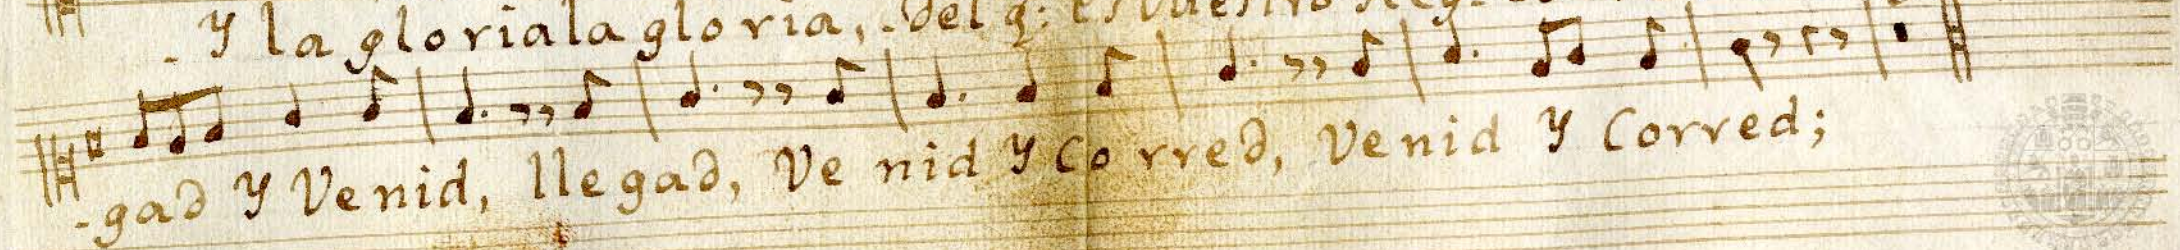 Y la gloria la gloria, del q: es vuestro Rey
-gad Y Venid, llegad, Ve nid Y Co rred, Venid Y Corred;